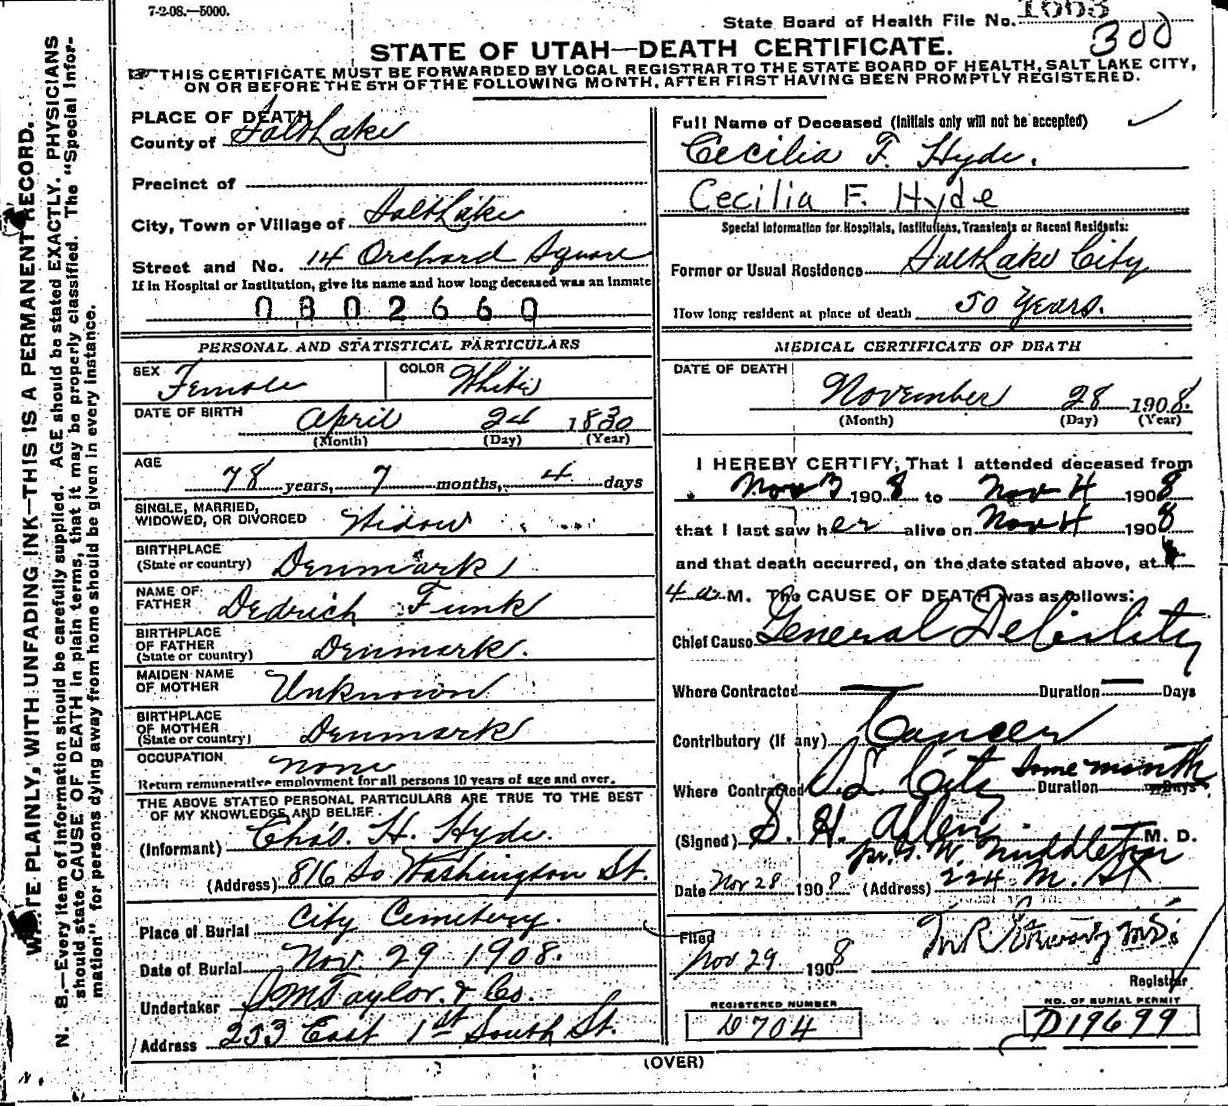 7-2-08.—5000.
State Board of Health File No. 1663
300
STATE OF UTAH—DEATH CERTIFICATE.
THIS CERTIFICATE MUST BE FORWARDED BY LOCAL REGISTRAR TO THE STATE BOARD OF HEALTH, SALT LAKE CITY,
ON OR BEFORE THE 5TH OF THE FOLLOWING MONTH, AFTER FIRST HAVING BEEN PROMPTLY REGISTERED.
WRITE PLAINLY, WITH UNFADING INK—THIS IS A PERMANENT RECORD.
N. B.—Every item of information should be carefully supplied. AGE should be stated EXACTLY. PHYSICIANS
should state CAUSE OF DEATH in plain terms, that it may be properly classified. The "Special Infor-
mation" for persons dying away from home should be given in every instance.
PLACE OF DEATH
County of Salt Lake
Precinct of
City, Town or Village of Salt Lake
Street and No. 14 Orchard Square
If in Hospital or Institution, give its name and how long deceased was an inmate
0802660
PERSONAL AND STATISTICAL PARTICULARS
SEX Female COLOR White
DATE OF BIRTH April 24 1830
(Month) (Day) (Year)
AGE 78 years, 7 months, 4 days
SINGLE, MARRIED,
WIDOWED, OR DIVORCED Widow
BIRTHPLACE
(State or country) Denmark
NAME OF
FATHER Dedrich Funk
BIRTHPLACE
OF FATHER
(State or country) Denmark.
MAIDEN NAME
OF MOTHER Unknown
BIRTHPLACE
OF MOTHER
(State or country) Denmark
OCCUPATION None
Return remunerative employment for all persons 10 years of age and over.
THE ABOVE STATED PERSONAL PARTICULARS ARE TRUE TO THE BEST
OF MY KNOWLEDGE AND BELIEF.
(Informant) Chas. H. Hyde.
(Address) 816 So Washington St.
Place of Burial City Cemetery.
Date of Burial Nov 29 1908.
Undertaker S.M Taylor & Co.
Address 253 East 1st South St.
Full Name of Deceased (Initials only will not be accepted)
Cecilia F. Hyde.
Cecilia F. Hyde
Special Information for Hospitals, Institutions, Transients or Recent Residents:
Former or Usual Residence Salt Lake City
How long resident at place of death 50 Years.
MEDICAL CERTIFICATE OF DEATH
DATE OF DEATH
November 28 1908.
(Month) (Day) (Year)
I HEREBY CERTIFY, That I attended deceased from
Nov 3 1908 to Nov 4 1908
that I last saw her alive on Nov 4 1908
and that death occurred, on the date stated above, at
4 a. M. The CAUSE OF DEATH was as follows:
Chief Cause General Debility
Where Contracted Duration Days
Contributory (If any) Cancer
Where Contracted S L City Duration Some month Days
(Signed) S. H. Allen M. D.
pr. G. W. Middleton
Date Nov 28 1908 (Address) 224 M. St
Filed
Nov 29 1908
Registrar
REGISTERED NUMBER
D704
NO. OF BURIAL PERMIT
D19699
(OVER)